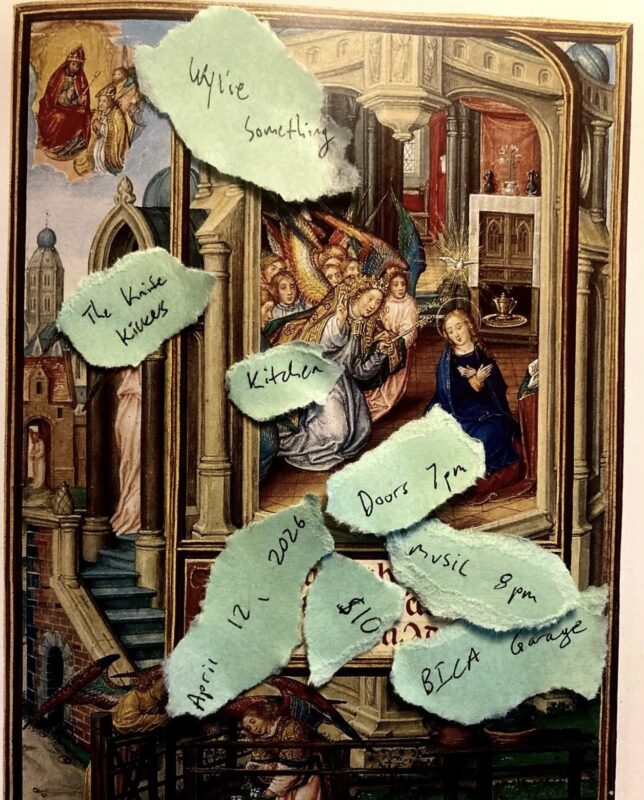 Wylie
Something
The Knife
Kickers
Kitchen
Doors 7pm
April 12, 2026
$10
Music 8pm
BICA Garage